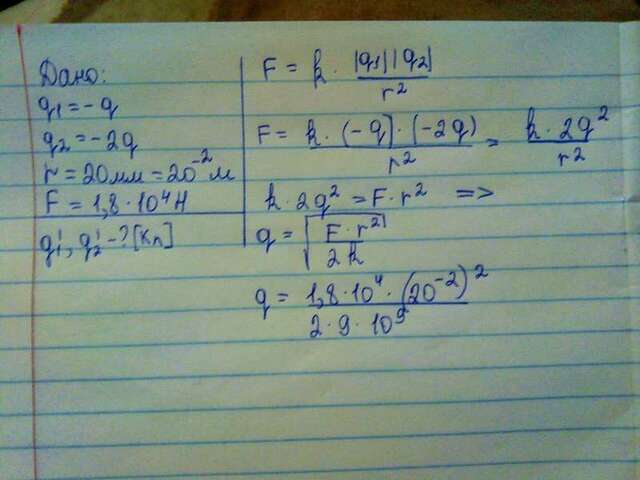 Дано:
q₁ = -q
q₂ = -2q
r = 20мм = 20⁻² м
F = 1,8 · 10⁴ Н
q₁', q₂' - ? [Кл]
F = k · |q₁||q₂| / r²
F = k · (-q) · (-2q) / r² = k · 2q² / r²
k · 2q² = F · r² =>
q = √(F · r² / 2k)
q = 1,8 · 10⁴ · (20⁻²)² / 2 · 9 · 10⁹